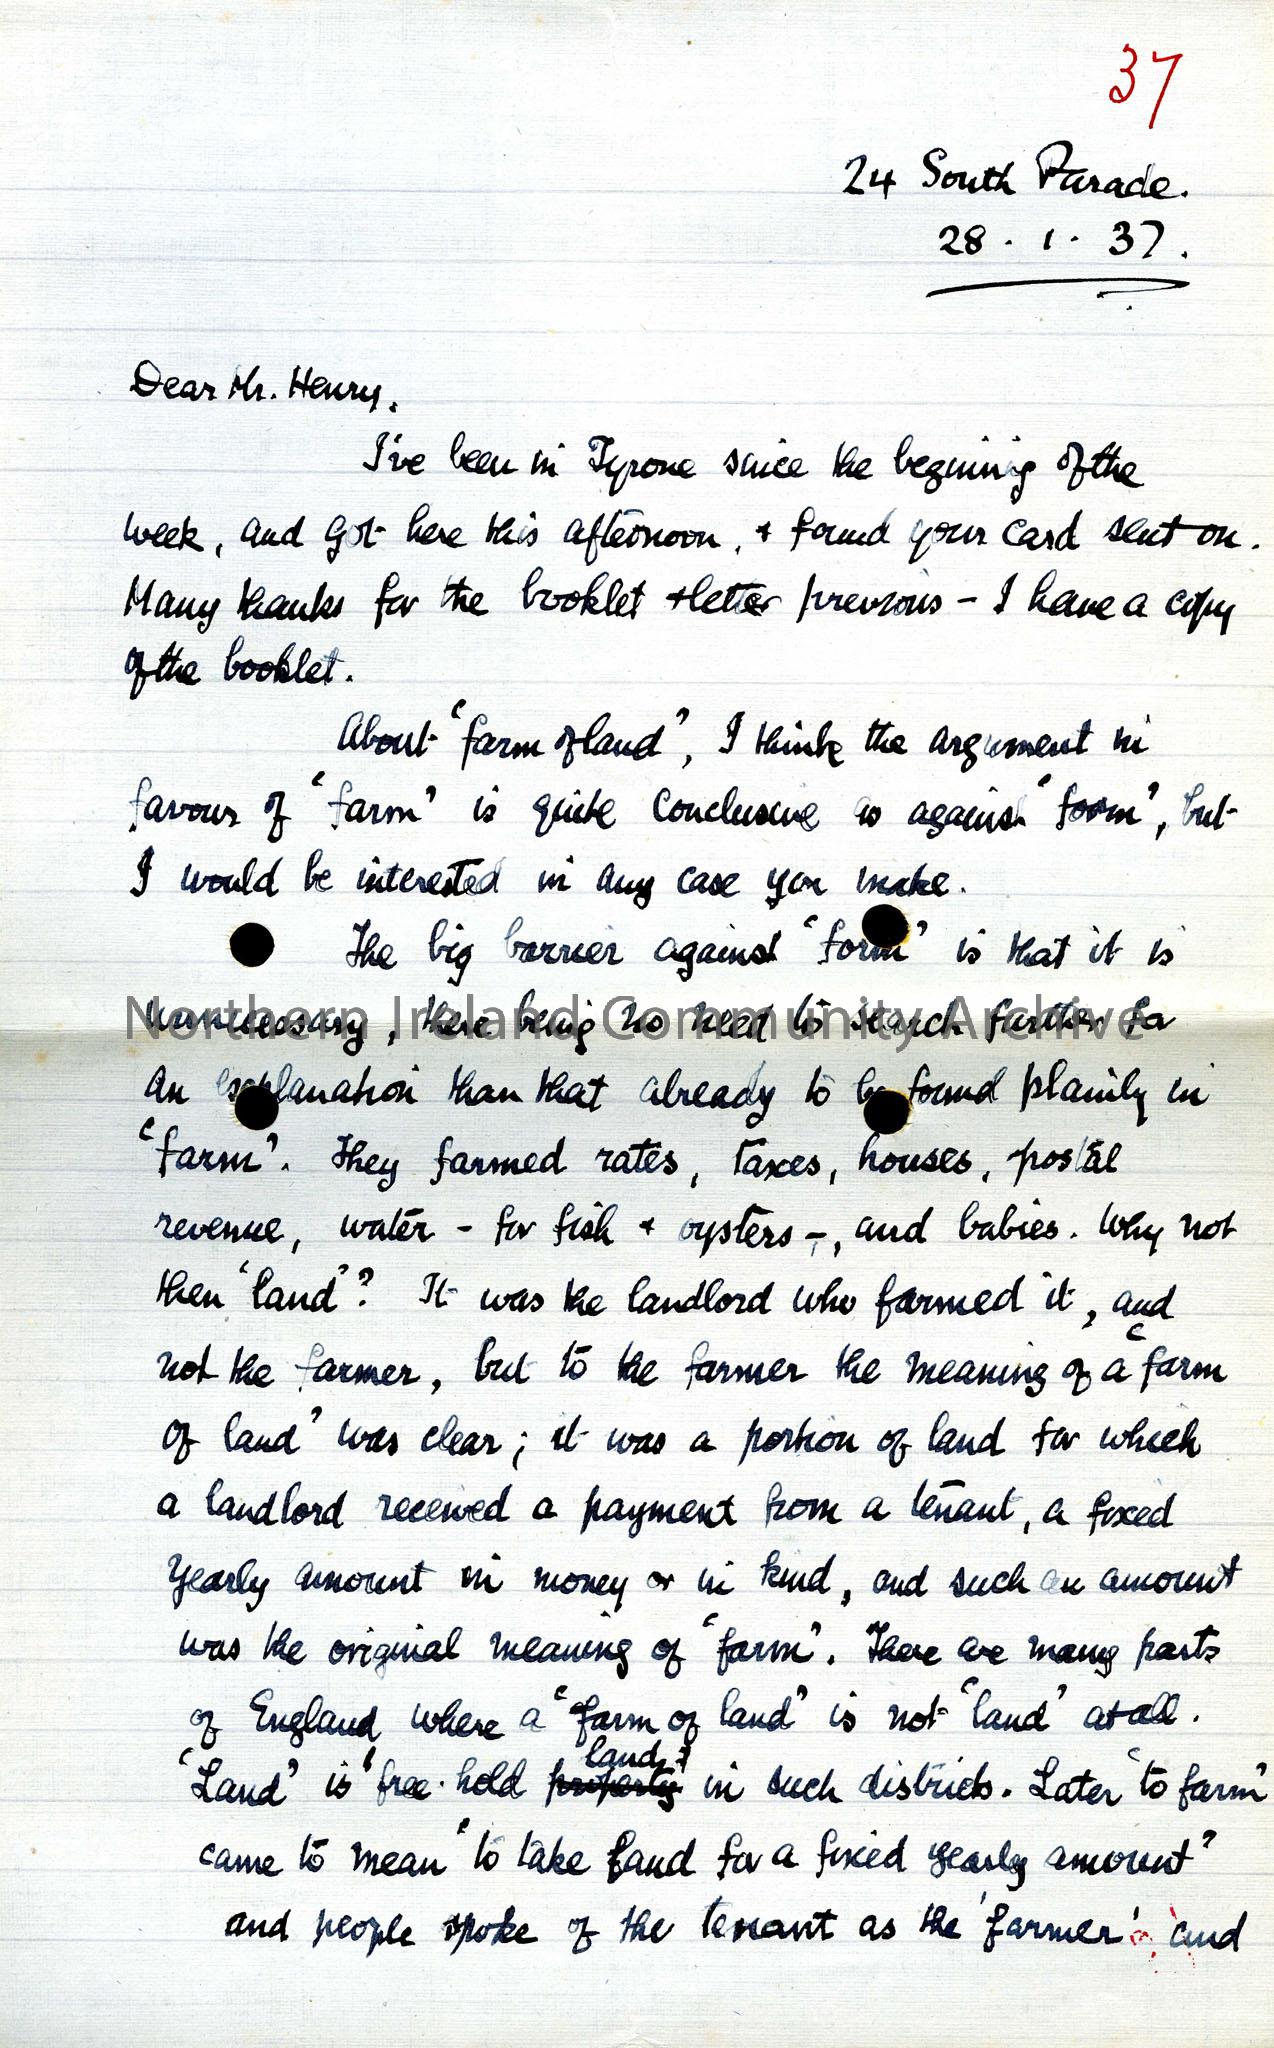 37
24 South Parade.
28 . 1 . 37.
Dear Mr. Henry,
I've been in Tyrone since the beginning of the
week, and got here this afternoon, & found your card sent on.
Many thanks for the booklet & letter previous - I have a copy
of the booklet.
About 'farm of land', I think the argument in
favour of 'farm' is quite conclusive as against 'form', but
I would be interested in any case you make.
The big barrier against 'form' is that it is
unnecessary, there being no need to search further for
Northern Ireland Community Archive
an explanation than that already to be found plainly in
'farm'. They farmed rates, taxes, houses, postal
revenue, water - for fish & oysters -, and babies. Why not
then 'land'? It was the landlord who farmed it, and
not the farmer, but to the farmer the meaning of a 'farm
of land' was clear; it was a portion of land for which
a landlord received a payment from a tenant, a fixed
yearly amount in money or in kind, and such an amount
was the original meaning of 'farm'. There are many parts
of England where a 'farm of land' is not 'land' at all.
land'
'Land' is 'free-hold property' in such districts. Later 'to farm'
came to mean 'to take land for a fixed yearly amount'
and people spoke of the tenant as the 'farmer' and